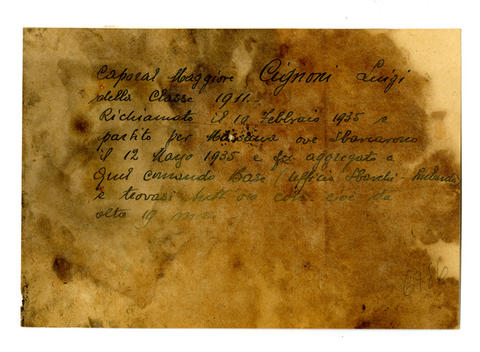 Caporal Maggiore Cugnoni Luigi
della Classe 1911.
Richiamato il 10 Febbraio 1935 e
partito per Massaua ove sbarcarono
il 12 Marzo 1935 e fu aggregato a
quel comando Base (Ufficio Sbarchi-
e trovasi tutt'ora così cioè da
oltre 19 mesi